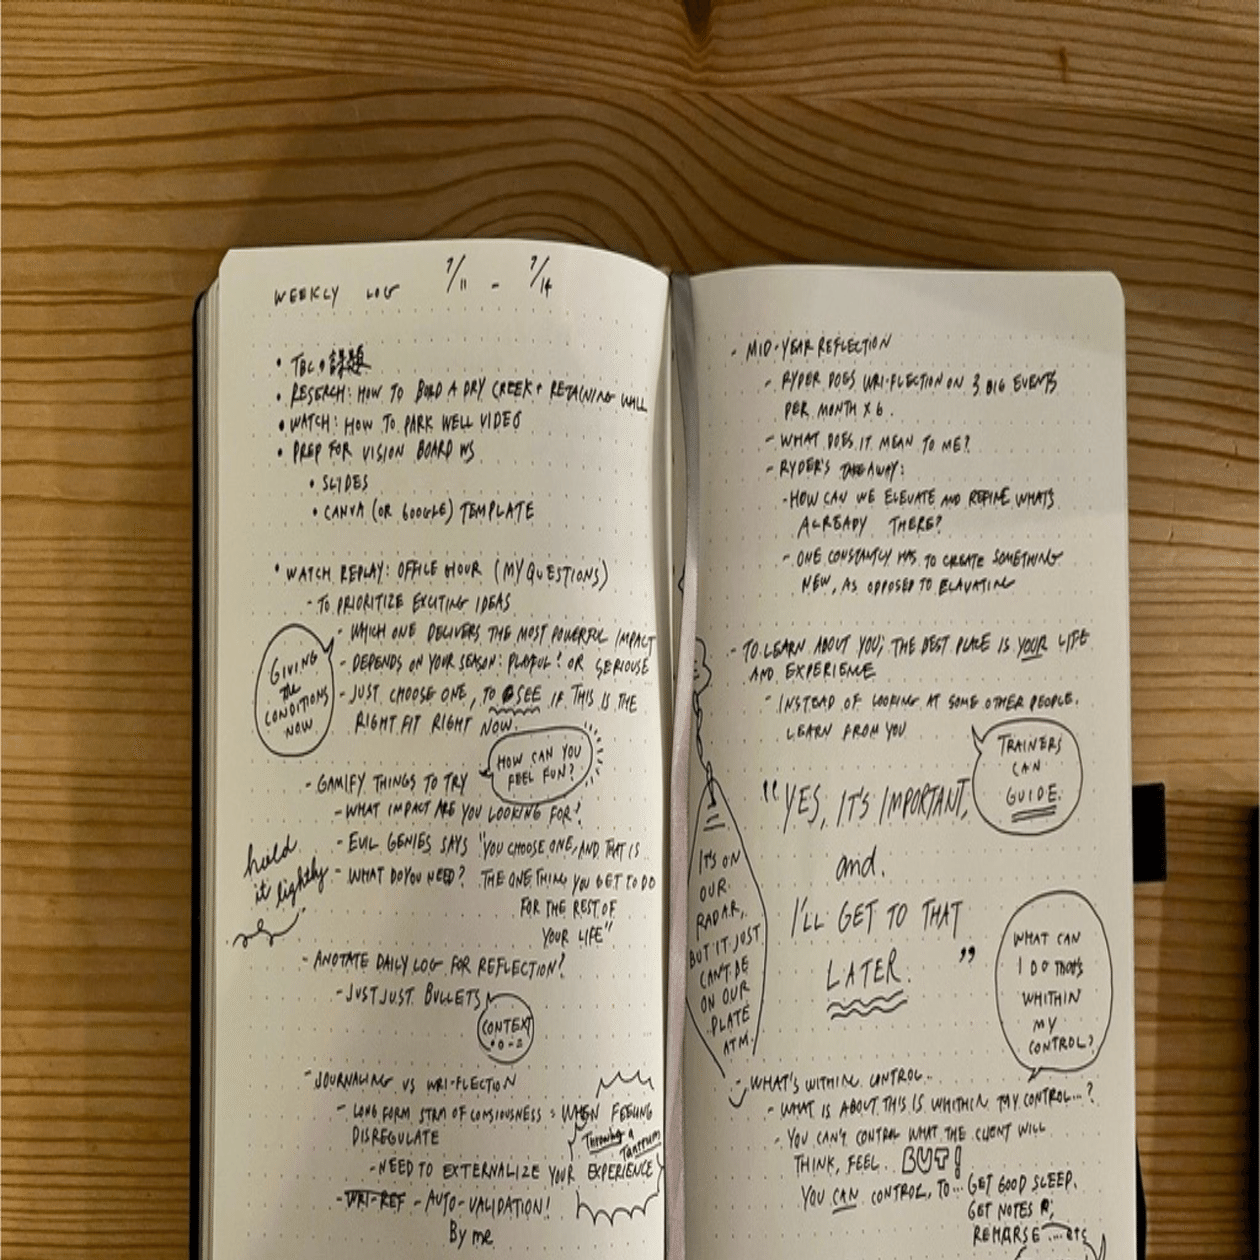 WEEKLY LOG 7/11 - 7/14
• TBC • 課題
• RESERCH: HOW TO BUILD A DRY CREEK + RETAINING WALL
• WATCH: HOW TO PARK WELL VIDEO
• PREP FOR VISION BOARD WS
• SLIDES
• CANVA (OR GOOGLE) TEMPLATE
• WATCH REPLAY: OFFICE HOUR (MY QUESTIONS)
- TO PRIORITIZE EXCITING IDEAS
- WHICH ONE DELIVERS THE MOST POWERFUL IMPACT
- DEPENDS ON YOUR SEASON: PLAYFUL? OR SERIOUSE
- JUST CHOOSE ONE, TO SEE IF THIS IS THE
RIGHT FIT RIGHT NOW.
GIVING
THE
CONDITIONS
NOW
- GAMIFY THINGS TO TRY
HOW CAN YOU
FEEL FUN?
- WHAT IMPACT ARE YOU LOOKING FOR?
- EVIL GENIES SAYS "YOU CHOOSE ONE, AND THAT IS
- WHAT DO YOU NEED? THE ONE THING YOU GET TO DO
FOR THE REST OF
YOUR LIFE"
hold
it lightly
- ANOTATE DAILY LOG FOR REFLECTION?
- JUST JUST BULLETS
CONTEXT
- JOURNALING VS WRI-FLECTION
- LONG FORM STRM OF CONSIOUSNESS = WHEN FEELING
DISREGULATE
Throwing a
Tantrum
- NEED TO EXTERNALIZE YOUR EXPERIENCE
- WRI-REF - AUTO-VALIDATION!
By me
- MID-YEAR REFLECTION
- RYDER DOES WRI-FLECTION ON 3 BIG EVENTS
PER MONTH X 6.
- WHAT DOES IT MEAN TO ME?
- RYDER'S TAKEAWAY:
- HOW CAN WE ELEVATE AND REFINE WHAT'S
ALREADY THERE?
- ONE CONSTANTLY HAS TO CREATE SOMETHING
NEW, AS OPPOSED TO ELAVATING
- TO LEARN ABOUT YOU, THE BEST PLACE IS YOUR LIFE
AND EXPERIENCE
- INSTEAD OF LOOKING AT SOME OTHER PEOPLE.
LEARN FROM YOU
TRAINERS
CAN
GUIDE.
"YES, IT'S IMPORTANT,
and.
I'LL GET TO THAT
LATER."
IT'S ON
OUR
RADAR,
BUT IT JUST
CAN'T BE
ON OUR
PLATE
ATM.
WHAT CAN
I DO THAT'S
WHITHIN
MY
CONTROL?
- WHAT'S WITHIN CONTROL..
- WHAT IS ABOUT THIS IS WHITHIN MY CONTROL...?
- YOU CAN'T CONTROL WHAT THE CLIENT WILL
THINK, FEEL.. BUT!
YOU CAN CONTROL, TO... GET GOOD SLEEP.
GET NOTES
REHARSE ... etc